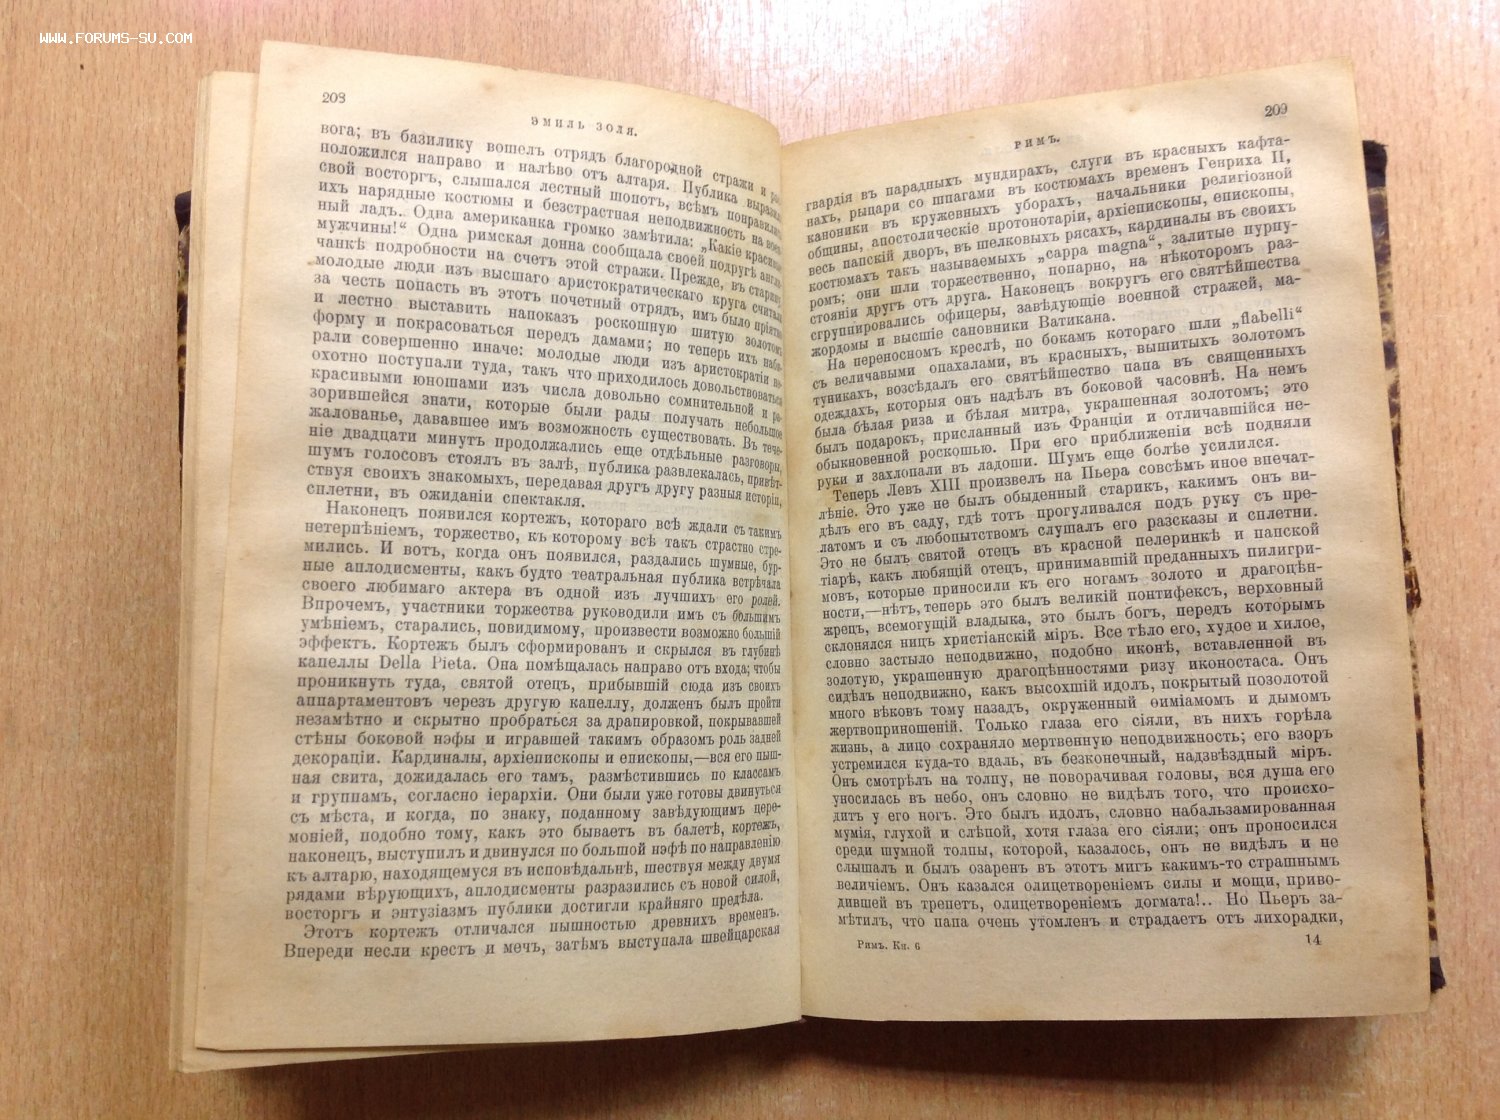 WWW.FORUMS-SU.COM
208
ЭМИЛЬ ЗОЛЯ.
вога; въ базилику вошелъ отрядъ благородной стражи и
положился направо и налѣво отъ алтаря. Публика
свой восторгъ, слышался лестный шопотъ, всѣмъ понравились
ихъ нарядные костюмы и безстрастная неподвижность на
ный ладъ. Одна американка громко замѣтила: „Какіе
мужчины!“ Одна римская донна сообщала своей подругѣ
чанкѣ подробности на счетъ этой стражи. Прежде, въ старину,
молодые люди изъ высшаго аристократическаго круга считали
за честь попасть въ этотъ почетный отрядъ, имъ было пріятно
и лестно выставить напоказъ роскошную шитую золотомъ
форму и покрасоваться передъ дамами; но теперь ихъ
рали совершенно иначе: молодые люди изъ аристократіи
охотно поступали туда, такъ что приходилось довольствоваться
красивыми юношами изъ числа довольно сомнительной и
зорившейся знати, которые были рады получать небольшое
жалованье, дававшее имъ возможность существовать. Въ тече-
ніе двадцати минутъ продолжались еще отдѣльные разговоры,
шумъ голосовъ стоялъ въ залѣ, публика развлекалась, привѣт-
ствуя своихъ знакомыхъ, передавая другъ другу разныя исторіи,
сплетни, въ ожиданіи спектакля.
Наконецъ появился кортежъ, котораго всѣ ждали съ такимъ
нетерпѣніемъ, торжество, къ которому всѣ такъ страстно стре-
мились. И вотъ, когда онъ появился, раздались шумные, бур-
ные аплодисменты, какъ будто театральная публика встрѣчала
своего любимаго актера въ одной изъ лучшихъ его ролей.
Впрочемъ, участники торжества руководили имъ съ большимъ
умѣніемъ, старались, повидимому, произвести возможно большій
эффектъ. Кортежъ былъ сформированъ и скрылся въ глубинѣ
капеллы Della Pieta. Она помѣщалась направо отъ входа; чтобы
проникнуть туда, святой отецъ, прибывшій сюда изъ своихъ
аппартаментовъ черезъ другую капеллу, долженъ былъ пройти
незамѣтно и скрытно пробраться за драпировкой, покрывавшей
стѣны боковой нэфы и игравшей такимъ образомъ роль задней
декораціи. Кардиналы, архіепископы и епископы,—вся его пыш-
ная свита, дожидалась его тамъ, размѣстившись по классамъ
и группамъ, согласно іерархіи. Они были уже готовы двинуться
съ мѣста, и когда, по знаку, поданному завѣдующимъ цере-
моніей, подобно тому, какъ это бываетъ въ балетѣ, кортежъ,
наконецъ, выступилъ и двинулся по большой нэфѣ по направленію
къ алтарю, находящемуся въ исповѣдальнѣ, шествуя между двумя
рядами вѣрующихъ, аплодисменты разразились съ новой силой,
восторгъ и энтузіазмъ публики достигли крайняго предѣла.
Этотъ кортежъ отличался пышностью древнихъ временъ.
Впереди несли крестъ и мечъ, затѣмъ выступала швейцарская
209
РИМЪ.
гвардія въ парадныхъ мундирахъ, слуги въ красныхъ кафта-
нахъ, рыцари со шпагами въ костюмахъ временъ Генриха II,
каноники въ кружевныхъ уборахъ, начальники религіозной
общины, апостолическіе протонотаріи, архіепископы, епископы,
весь папскій дворъ, въ шелковыхъ рясахъ, кардиналы въ своихъ
костюмахъ такъ называемыхъ „cappa magna“, залитые пурпу-
ромъ; они шли торжественно, попарно, на нѣкоторомъ раз-
стояніи другъ отъ друга. Наконецъ вокругъ его святѣйшества
сгруппировались офицеры, завѣдующіе военной стражей, ма-
жордомы и высшіе сановники Ватикана.
На переносномъ креслѣ, по бокамъ котораго шли „flabelli“
съ величавыми опахалами, въ красныхъ, вышитыхъ золотомъ
туникахъ, возсѣдалъ его святѣйшество папа въ священныхъ
одеждахъ, которыя онъ надѣлъ въ боковой часовнѣ. На немъ
была бѣлая риза и бѣлая митра, украшенная золотомъ; это
былъ подарокъ, присланный изъ Франціи и отличавшійся не-
обыкновенной роскошью. При его приближеніи всѣ подняли
руки и захлопали въ ладоши. Шумъ еще болѣе усилился.
Теперь Левъ XIII произвелъ на Пьера совсѣмъ иное впечат-
лѣніе. Это уже не былъ обыденный старикъ, какимъ онъ ви-
дѣлъ его въ саду, гдѣ тотъ прогуливался подъ руку съ пре-
латомъ и съ любопытствомъ слушалъ его разсказы и сплетни.
Это не былъ святой отецъ въ красной пелеринкѣ и папской
тіарѣ, какъ любящій отецъ, принимавшій преданныхъ пилигри-
мовъ, которые приносили къ его ногамъ золото и драгоцѣн-
ности,—нѣтъ, теперь это былъ великій понтифексъ, верховный
жрецъ, всемогущій владыка, это былъ богъ, передъ которымъ
склонялся ницъ христіанскій міръ. Все тѣло его, худое и хилое,
словно застыло неподвижно, подобно иконѣ, вставленной въ
золотую, украшенную драгоцѣнностями ризу иконостаса. Онъ
сидѣлъ неподвижно, какъ высохшій идолъ, покрытый позолотой
много вѣковъ тому назадъ, окруженный ѳиміамомъ и дымомъ
жертвоприношеній. Только глаза его сіяли, въ нихъ горѣла
жизнь, а лицо сохраняло мертвенную неподвижность; его взоръ
устремился куда-то вдаль, въ безконечный, надзвѣздный міръ.
Онъ смотрѣлъ на толпу, не поворачивая головы, вся душа его
уносилась въ небо, онъ словно не видѣлъ того, что происхо-
дитъ у его ногъ. Это былъ идолъ, словно набальзамированная
мумія, глухой и слѣпой, хотя глаза его сіяли; онъ проносился
среди шумной толпы, которой, казалось, онъ не видѣлъ и не
слышалъ и былъ озаренъ въ этотъ мигъ какимъ-то страшнымъ
величіемъ. Онъ казался олицетвореніемъ силы и мощи, приво-
дившей въ трепетъ, олицетвореніемъ догмата!.. Но Пьеръ за-
мѣтилъ, что папа очень утомленъ и страдаетъ отъ лихорадки,
Римъ. Кн. 6
14